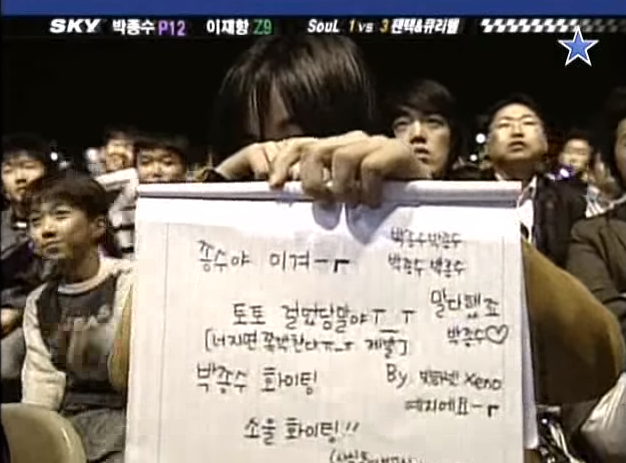 SKY 박종수 P12 이재항 Z9 SouL 1 vs 3 팬택&큐리텔
종수야 이겨ㅡㅜ
박종수박종수
박종수 박종수
토토 걸었당말야ㅜ_ㅜ
말다했죠
[너지면 쪽박찬다ㅠ_ㅠ 제발]
박종수♡
박종수 화이팅
By. Xeno
예지에요ㅡㅜ
소울 화이팅!!